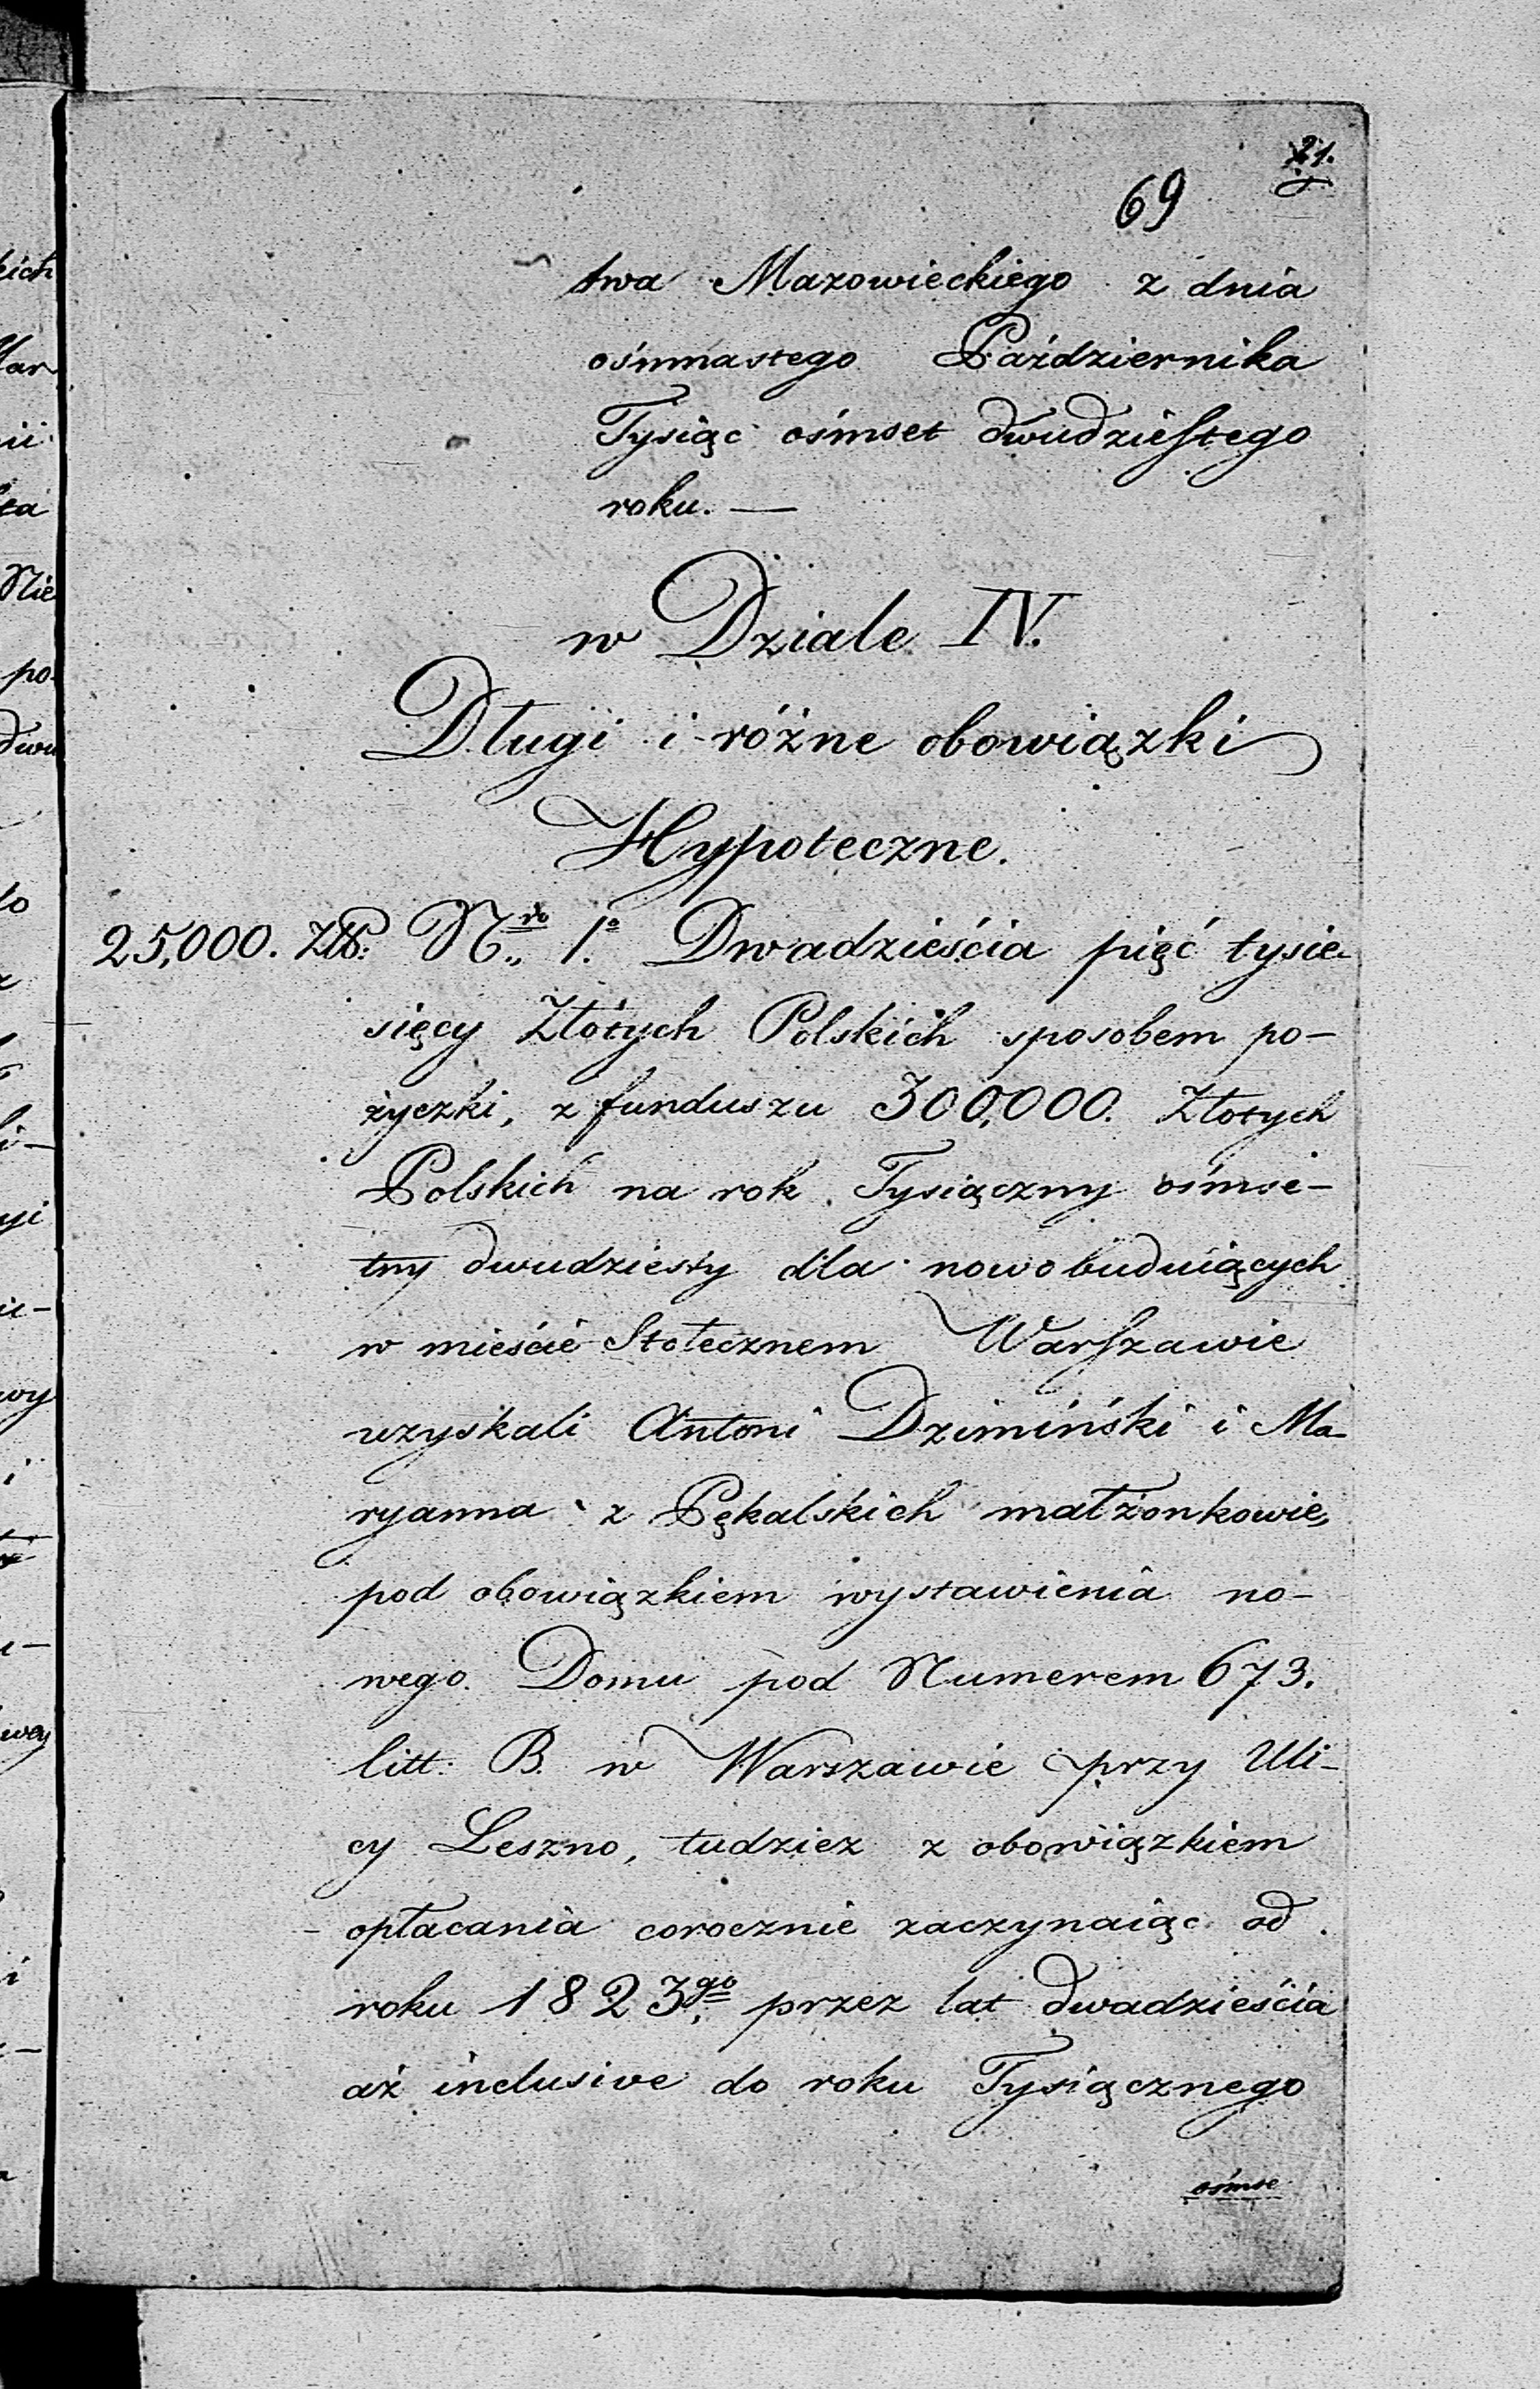 21.
69
twa Mazowieckiego z dnia
ośmnastego Października
Tysiąc ośmset dwudziestego
roku. —
w Dziale IV.
Długi i różne obowiązki
Hypoteczne.
25,000. Złtp. Nro 1o. Dwadzieścia pięć tysie-
sięcy Złotych Polskich sposobem po-
życzki, z funduszu 300,000. Złotych
Polskich na rok Tysiączny ośmse-
tny dwudziesty dla nowobuduiących
w mieście Stołecznem Warszawie
uzyskali Antoni Dzimiński i Ma-
ryanna z Pękalskich małżonkowie,
pod obowiązkiem wystawienia no-
wego Domu pod Numerem 673.
litt. B. w Warszawie przy Uli-
cy Leszno, tudziez z obowiązkiem
opłacania corocznie zaczynaiąc od
roku 1823go przez lat dwadzieścia
aż inclusive do roku Tysiącznego
ośmse
kich
Mar
ta
Nie
po
dwu
to
li-
yi
wy
wey